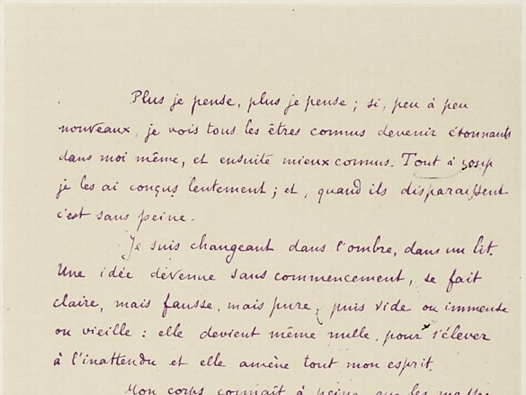 Plus je pense, plus je pense ; si, peu à peu
nouveaux, je vois tous les êtres connus devenir étonnants
dans moi même, et ensuite mieux connus. Tout à
je les ai conçus lentement ; et, quand ils disparaissent
c'est sans peine.
Je suis changeant dans l'ombre, dans un lit.
Une idée devenue sans commencement, se fait
claire, mais fausse, mais pure, puis vide ou immense
ou vieille : elle devient même nulle, pour s'élever
à l'inattendu et elle amène tout mon esprit.
Mon corps connaît à peine que les